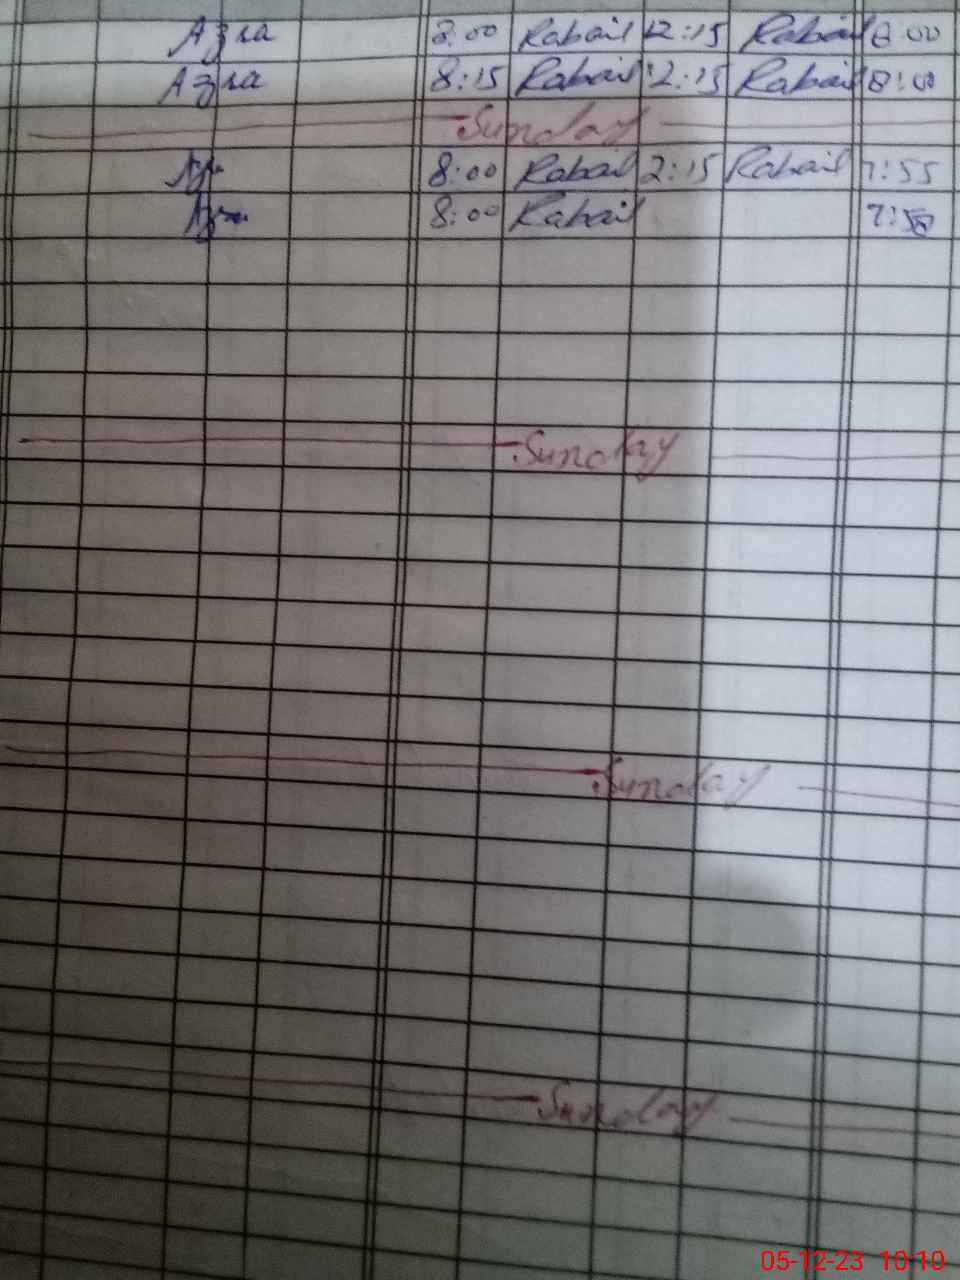 Azra 8:00 Rabail 12:15 Rabail 8:00
Azra 8:15 Rabail 12:15 Rabail 8:00
Sunday
8:00 Rabail 2:15 Rabail 7:55
8:00 Rabail
Sunday
Sunday
Sunday
05-12-23 10:10